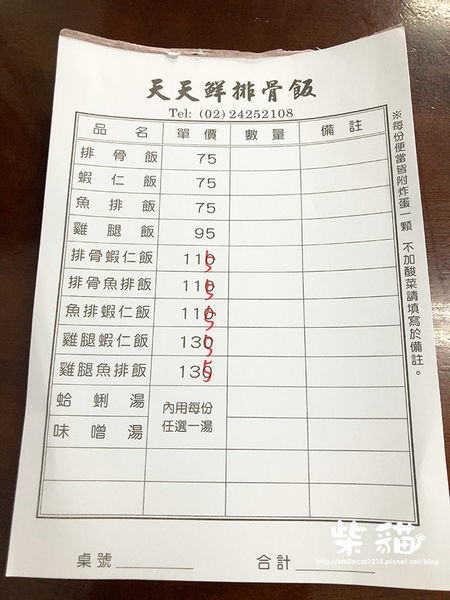 天天鮮排骨飯
Tel: (02) 24252108
品名 單價 數量 備註
排骨飯 75
蝦仁飯 75
魚排飯 75
雞腿飯 95
排骨蝦仁飯 115
排骨魚排飯 115
魚排蝦仁飯 115
雞腿蝦仁飯 135
雞腿魚排飯 135
蛤蜊湯 內用每份
味噌湯 任選一湯
※每份便當皆附炸蛋一顆 不加酸菜請填寫於備註。
桌號 合計
柴貓
http://smilecat1215.pixnet.net/blog